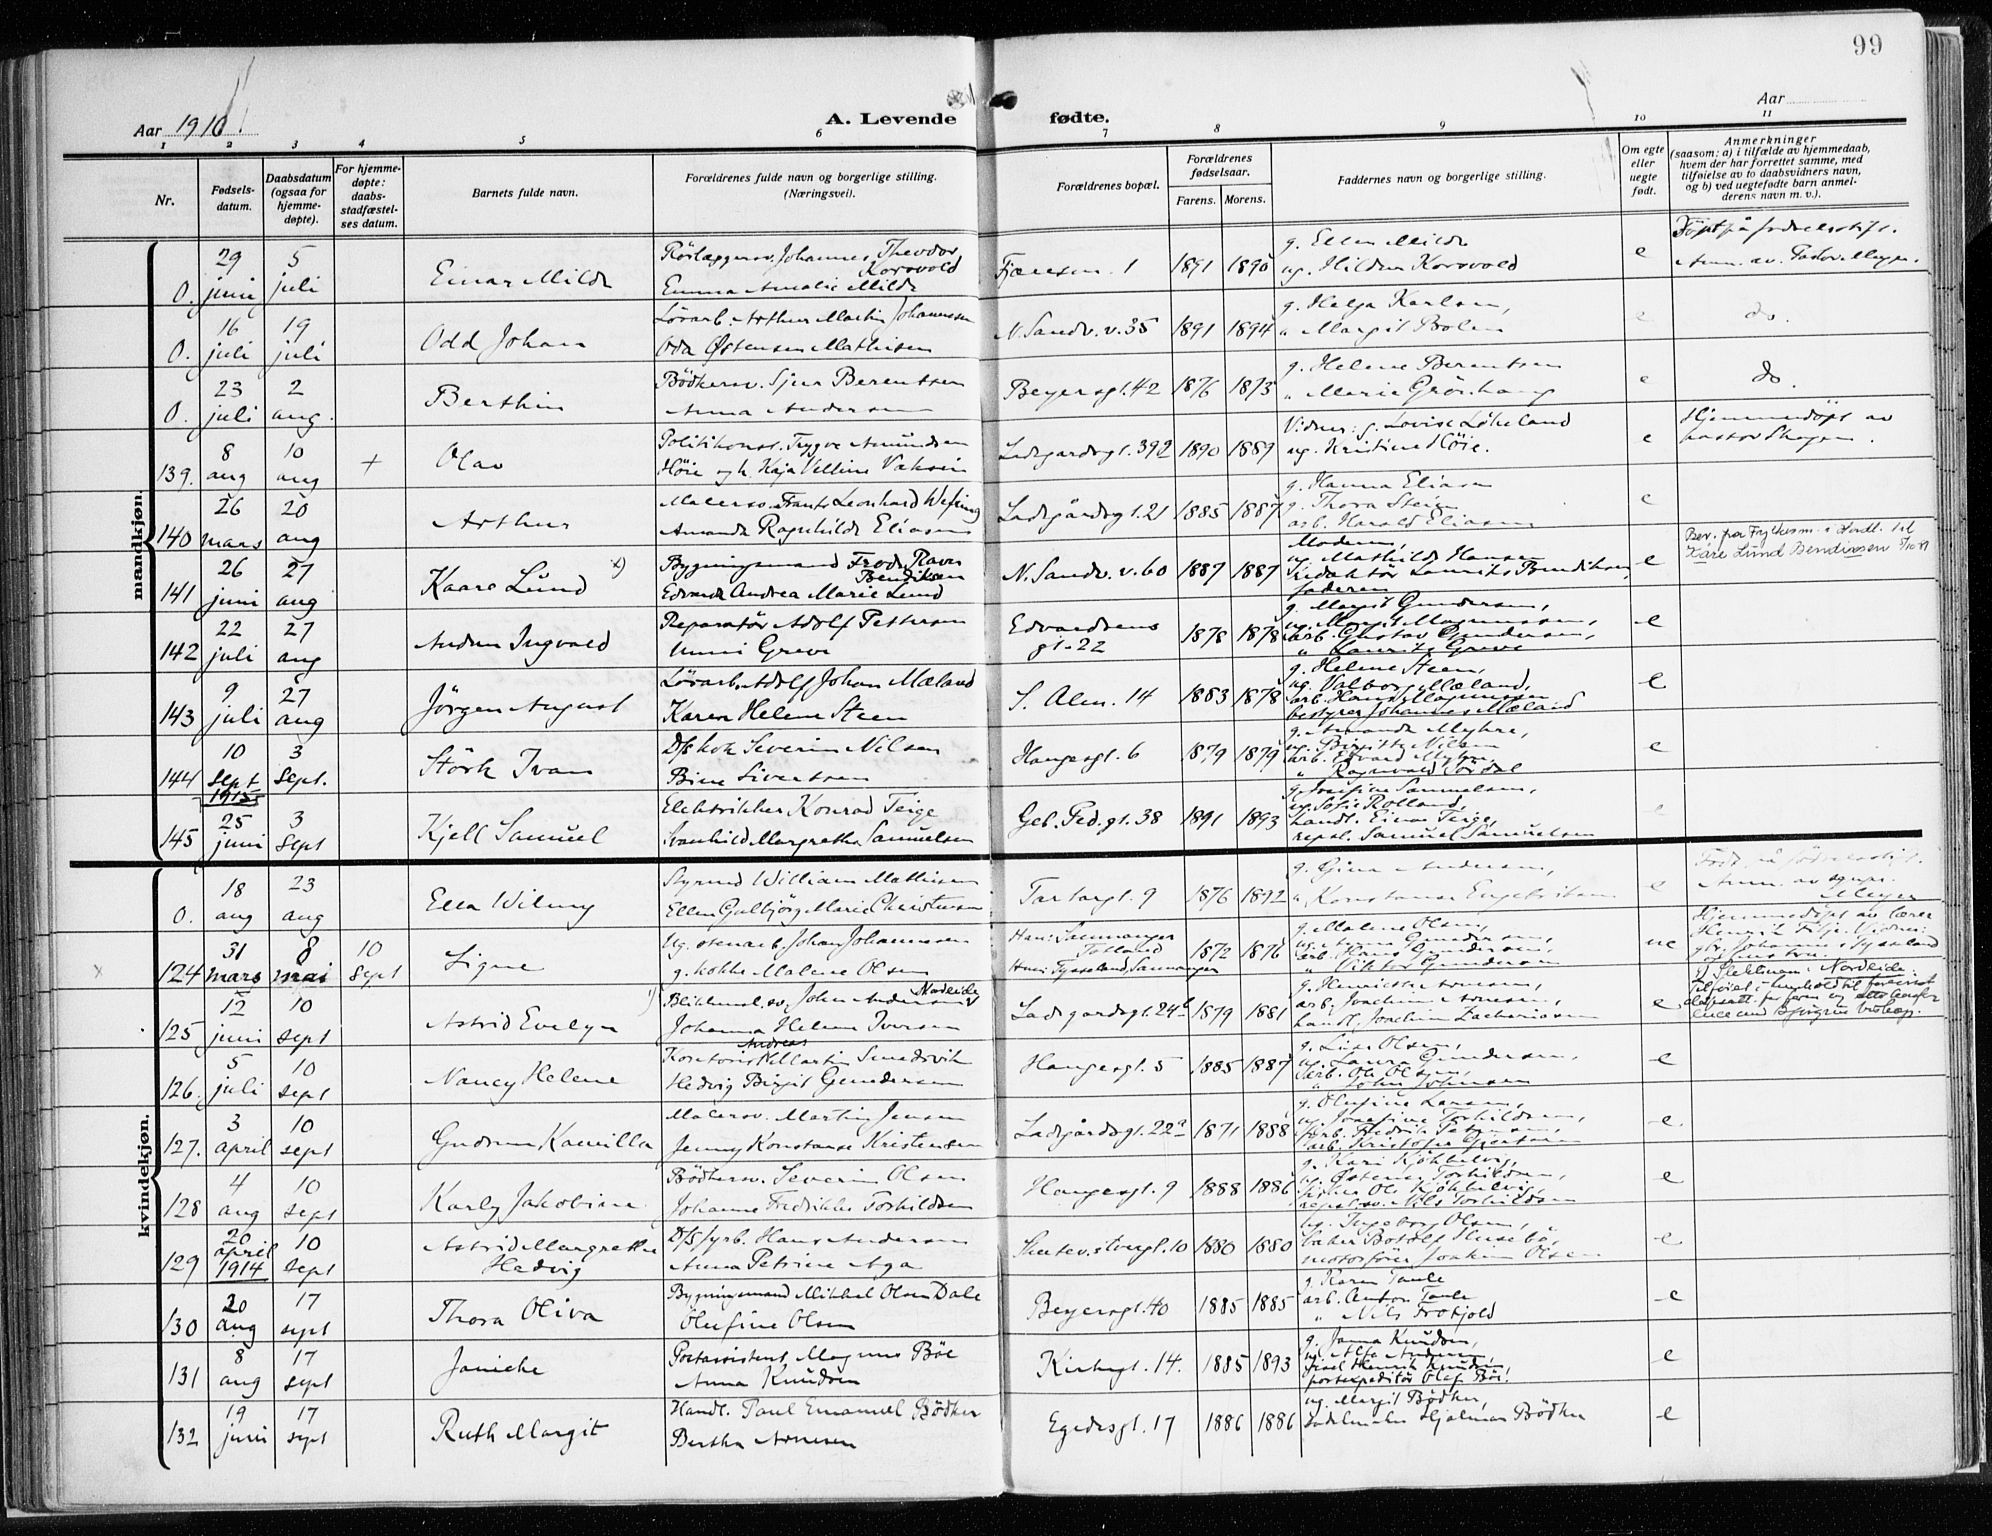 99
Aar 1916
A. Levende fødte.
Aar
1 2 3 4 5 6 7 8 9 10 11
Nr.
Fødsels-
datum.
Daabsdatum
(ogsaa for
hjemme-
døpte).
For hjemme-
døpte:
daabs-
stadfæstel-
ses datum.
Barnets fulde navn.
Forældrenes fulde navn og borgerlige stilling.
(Næringsvei).
Forældrenes bopæl.
Forældrenes
fødselsaar.
Farens. Morens.
Faddernes navn og borgerlige stilling.
Om egte
eller
uegte
født.
Anmerkninger
(saasom: a) i tilfælde av hjemmedaab,
hvem der har forrettet samme, med
tilføielse av to daabsvidners navn,
og b) ved uegtefødte barn anmel-
derens navn m. v.).
mandkjøn.
0. 29 juni 5 juli Einar Milde
Rörlæggersv. Johannes Theodor Korsvold
Emma Amalie Milde
Fjæresm. 1 1891 1890
g. Ellen Milde
ug. Hildur Korsvold
e
Döpt på fødselsstift.
Anm. av Pastor Meyer.
0. 16 juli 19 juli Odd Johan
Lösarb. Arthur Martin Johannessen
Oda Østensen Mathisen
N. Sandv. v. 35 1891 1894
g. Helga Karlsen,
" Margit Bolen
e do.
0. 23 juli 2 aug. Berthin
Bödkersv. Sjur Berentsen
Anna Andersen
Beyersgt. 42 1876 1873
g. Helene Berentsen
" Marie Grönhaug
e do.
139. 8 aug 10 aug + Olav
Politikonst. Trygve Amundsen
Höie og h. Kaja Velline Vaksvin
Ladegårdsgt. 392 1890 1889
Vidner: g. Lovise Løkeland
ug. Kristine Höie.
e
Hjemmedöpt av
pastor Skagen.
140 26 mars 20 aug Arthur
Malersv. Frants Leonhard Wefring
Amanda Ragnhilde Eliasen
Ladegårdsgt. 21 1885 1887
g. Hanna Eliasen
g. Thora Steien
arb. Harald Eliasen
e
141 26 juni 27 aug Kaare Lund x)
Bygningsmand Frode Ravn Bendiksen
Edvarda Andrea Marie Lund
N. Sandv. v. 60 1887 1887
Moderen,
ug. Mathilde Hansen
Redaktör Laurits Bendiksen,
faderen
e
Bev. fra Fylkesm. i Hordl. til
Kåre Lund Bendixsen 5/10 49
142 22 juli 27 aug Audun Ingvald
Reparatör Adolf Pettersen
Unni Greve
Edvardsens
gt. 22 1878 1878
g. Margit Gundersen,
ug. Margit Magnussen,
arb. Gustav Gundersen,
" Laurits Greve
e
143 9 juli 27 aug Jörgen August
Lösarb. Adolf Johan Mæland
Karen Helene Steen
S. Alm. 14 1883 1878
g. Helene Steen,
ug. Valborg Mæland,
arb. Hans Magnussen
bestyrer Johannes Mæland
e
144 10 sept 1915 3 Sept. Störk Ivan
Dsk. kok Severin Nilsen
Bine Sivertsen
Haugesgt. 6 1879 1879
g. Amanda Myhre,
ug. Birgitte Nilsen
arb. Edvard Myhre,
" Ragnvald Sördal
e
145 25 juni 3 Sept Kjell Samuel
Elektrikker Konrad Teige
Svanhild Margrethe Samuelsen
Geb. Ped. gt. 38 1891 1893
g. Josefine Samuelsen,
ug. Sofie Rolland,
handl. Einar Teige,
repsl. Samuel Samuelsen
e
kvindekjøn.
0. 18 aug 23 aug Ella Wilmy
Styrmd William Mathisen
Ellen Gulbjörg Marie Christensen
Tartargt. 9 1876 1892
g. Gina Andersen,
" Konstanse Engebretsen
e
Födt på födselsstift.
Anm. av sgpr.
Meyer
x 124 31 mars 8 mai 10 Sept Signe
Ug. stenarb. Johan Johannessen
g. kokke Malene Olsen
Ham: Samnanger
Tolland
Hun: Tysseland, Samnanger
1872 1876
g. Malene Olsen,
ug. Agnes Gundersen,
arb. Hans Gundersen,
" Viktor Gundersen
ue
Hjemmedöpt av lærer
Henrik Frije. Vidner:
gbr. Johannes Tysseland
og hustru.
125 12 juni 10 sept Astrid Evelyn
1) Blikkensl.sv. John Andersen Nordeide
Johanna Helene Iversen
Ladegardsgt. 24b 1879 1881
g. Henriette Arnesen,
arb. Joachim Arnesen,
handl. Joachim Zachariasen
e
1) Slektnavn: Nordeide.
Tilföiet i henhold til forevist
126. 5 juli 10 sept Nancy Helene
Kontorist Martin Andreas Smedsvik
Hedvig Birgit Gundersen
Haugesgt. 5 1885 1887
g. Lise Olsen,
ug. Laura Gundersen,
arb. Ole Olsen,
" John Johnsen
e
127. 3 april 10 sept Gudrun Kamilla
Malersv. Martin Jensen
Jenny Konstanse Kristensen
Ladegårdsgt. 22a 1871 1888
g. Olufine Larsen,
ug. Josefine Torkildsen,
arb. Fredrik Petersen,
arb. Kristofer Gjertsen
e.
128 4 aug 10 sept Karly Jakobine
Bödkersv. Severin Olsen
Johanne Fredrikke Torkildsen
Haugesgt. 9 1888 1886
g. Kari Kjökkelvig,
ug. Østene Torkildsen,
fisker Ole Kjökkelvig,
repsl.sv. Nils Torkildsen
e
129 20 april 1914 10 sept Astrid Margrethe
Hedvig
Dsfyrb. Hans Andersen
Anna Petrine Aga
Skutev. stvergt. 10 1880 1880
ug. Ingeborg Olsen,
baker Botolf Husebö,
motorförer Joakim Olsen
e
130 20 aug 17 sept Thora Oliva
Bygningsmand Mikkel Olsen Dale
Olufine Olsen
Beyersgt. 40 1885 1885
g. Karen Taule
arb. Anton Taule
" Nils Frotjold
e
131 8 aug 17 sept Janicke
Postassistent Magnus Böe
Anna Knudsen
Kirkegt. 14. 1885 1893
g. Janna Knudsen,
ug. Alfa Andersen,
fisel. Henrik Knudsen,
postexpeditör Olaf Böe.
e
132 19 juni 17 sept Ruth Margit
Handl. Paul Emanuel Bödker
Bertha Arnesen
Egedesgt. 17 1886 1886
ug. Margit Bödker,
Sadelmaker Hjalmar Bödker
e